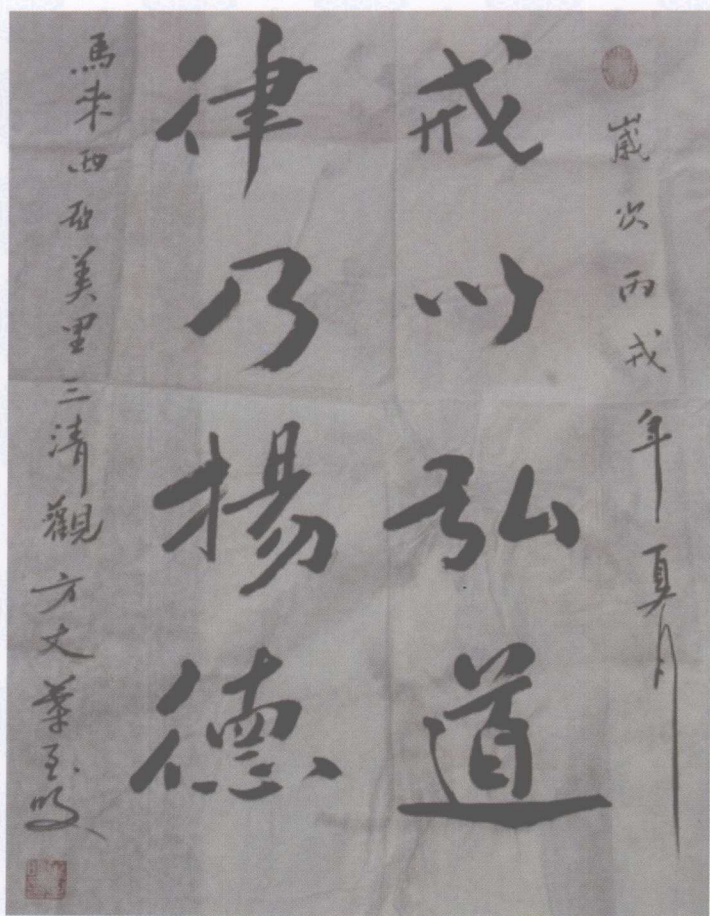 歲次丙戌年夏月
戒以弘道
律乃揚德
馬來西亞美里三清觀方丈葉至明